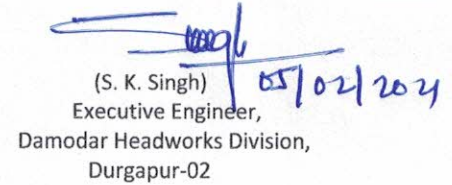 Singh
(S. K. Singh) 05/02/2021
Executive Engineer,
Damodar Headworks Division,
Durgapur-02